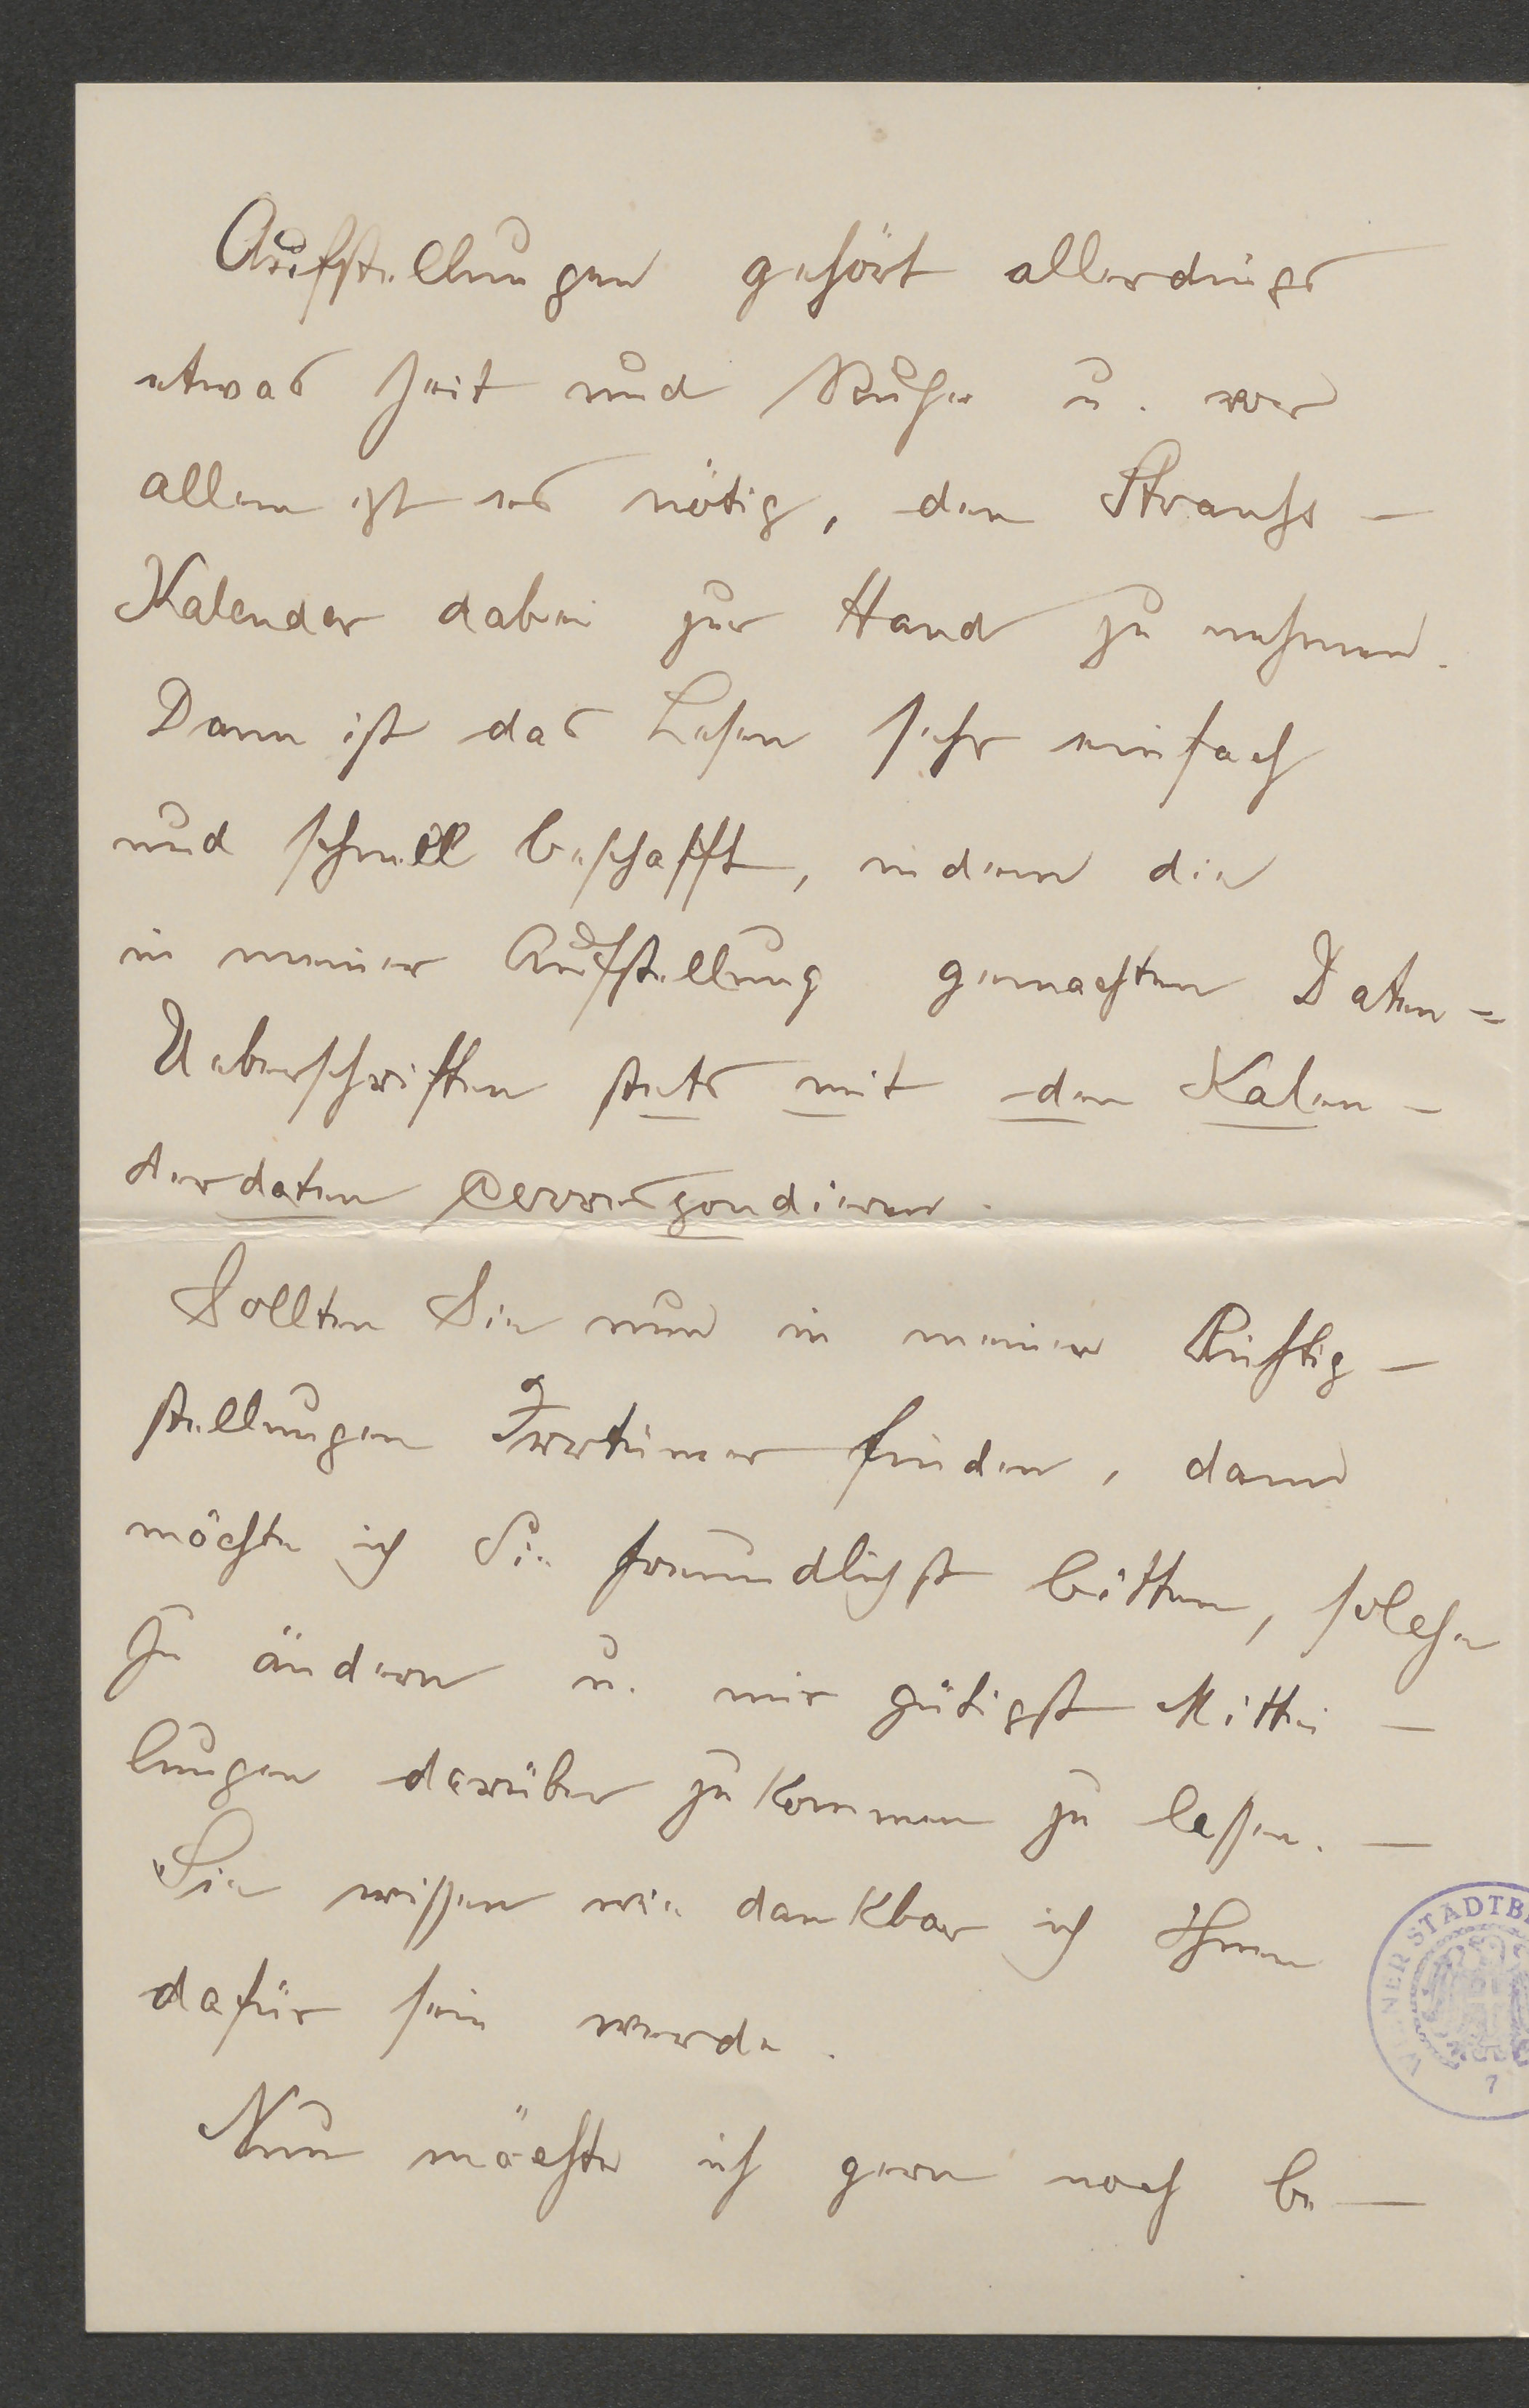 Aufstellungen gehört allerdings
etwas Zeit und Ruhe u. vor
allem ist es nötig, den Strauss-
Kalender dabei zur Hand zu nehmen.
Dann ist das Lesen sehr einfach
und schnell beschafft, indem die
in meiner Aufstellung gemachten Daten=
Ueberschriften stets mit den Kalen-
derdaten correspondieren.
Sollten Sie nun in meinen Richtig-
stellungen Irrtümer finden, dann
möchte ich Sie freundlichst bitten, solche
zu ändern u. mir gütigst Mittei-
lungen darüber zukommen zu lassen. —
Sie wissen wie dankbar ich Ihnen
dafür sein werde.
Nun möchte ich gern noch be-
WIENER STADTB
7